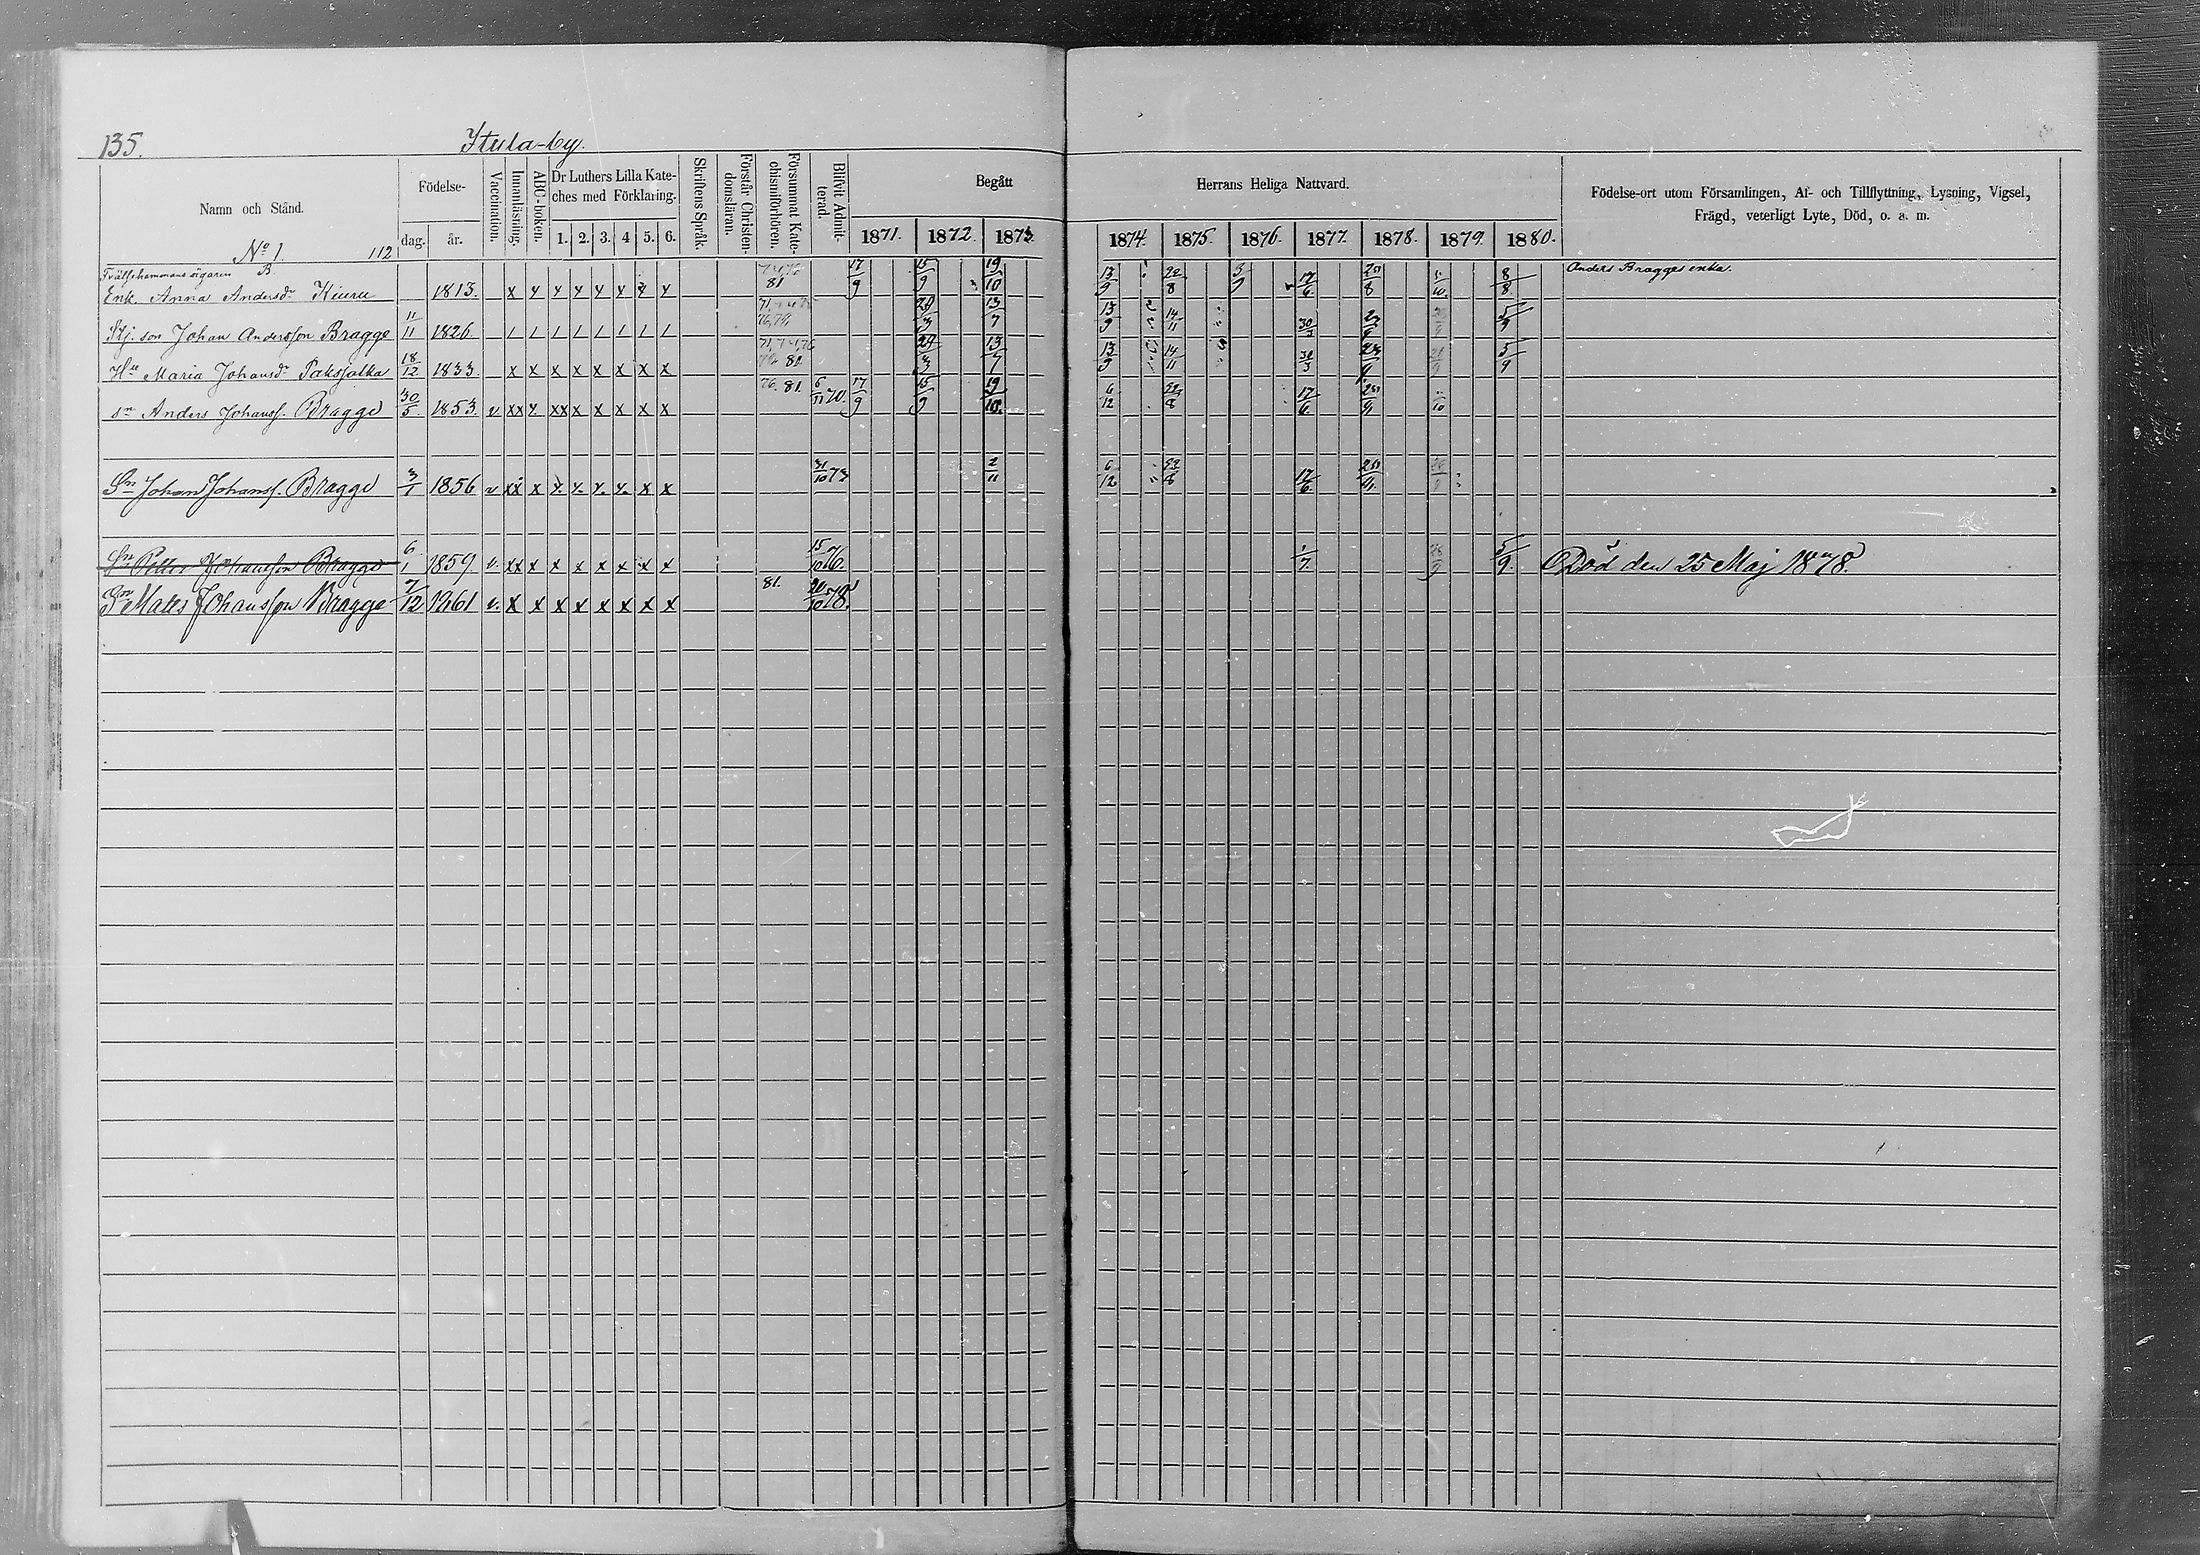 135.
Itula-by.
Namn och Stånd.
Födelse-
dag. år.
Vaccination.
Innanläsning.
ABC-boken.
Dr Luthers Lilla Kate-
ches med Förklaring.
1. 2. 3. 4 5. 6.
Skriftens Språk.
Förstår Christen-
domsläran.
Försummat Kate-
chismiförhören.
Blifvit Admit-
terad.
Begått
Herrans Heliga Nattvard.
1871. 1872. 1873. 1874. 1875. 1876. 1877. 1878. 1879. 1880.
Födelse-ort utom Församlingen, Af- och Tillflyttning, Lysning, Vigsel,
Frägd, veterligt Lyte, Död, o. a. m.
No 1. 112
B
Enk. Anna Andersdr Kiuru 1813. x x x x x x x x 81 17/9 15/9 19/10 13/9 20/8 3/9 17/6 8/8 Anders Bragges enka.
Stj. son Johan Andersson Bragge 11/11 1826 / / / / / / / / 13/7 13/9 14/11 30/3 5/9
Hu Maria Johansdr 18/12 1833 x x x x x x x x 81 13/7 13/9 14/11 5/9
sn Anders Johanss. Bragge 30/5 1853. v. xx x xx x x x x x 76 81 6/11 70. 17/9 15/9 19/10. 6/12 17/6
Sn Johan Johanss. Bragge 3/1 1856 v xx x x x. x. x. x x 31/10 73 2/11 6/12 17/6
Sn Petter Johansson Bragge 6/1 1859 v. xx x x x x x x x 15/10 76. 1/7 5/9. Död den 25 Maj 1878.
Son Mates Johansson Bragge 7/12 1861 v. x x x x x x x x 81. 20/10 78.